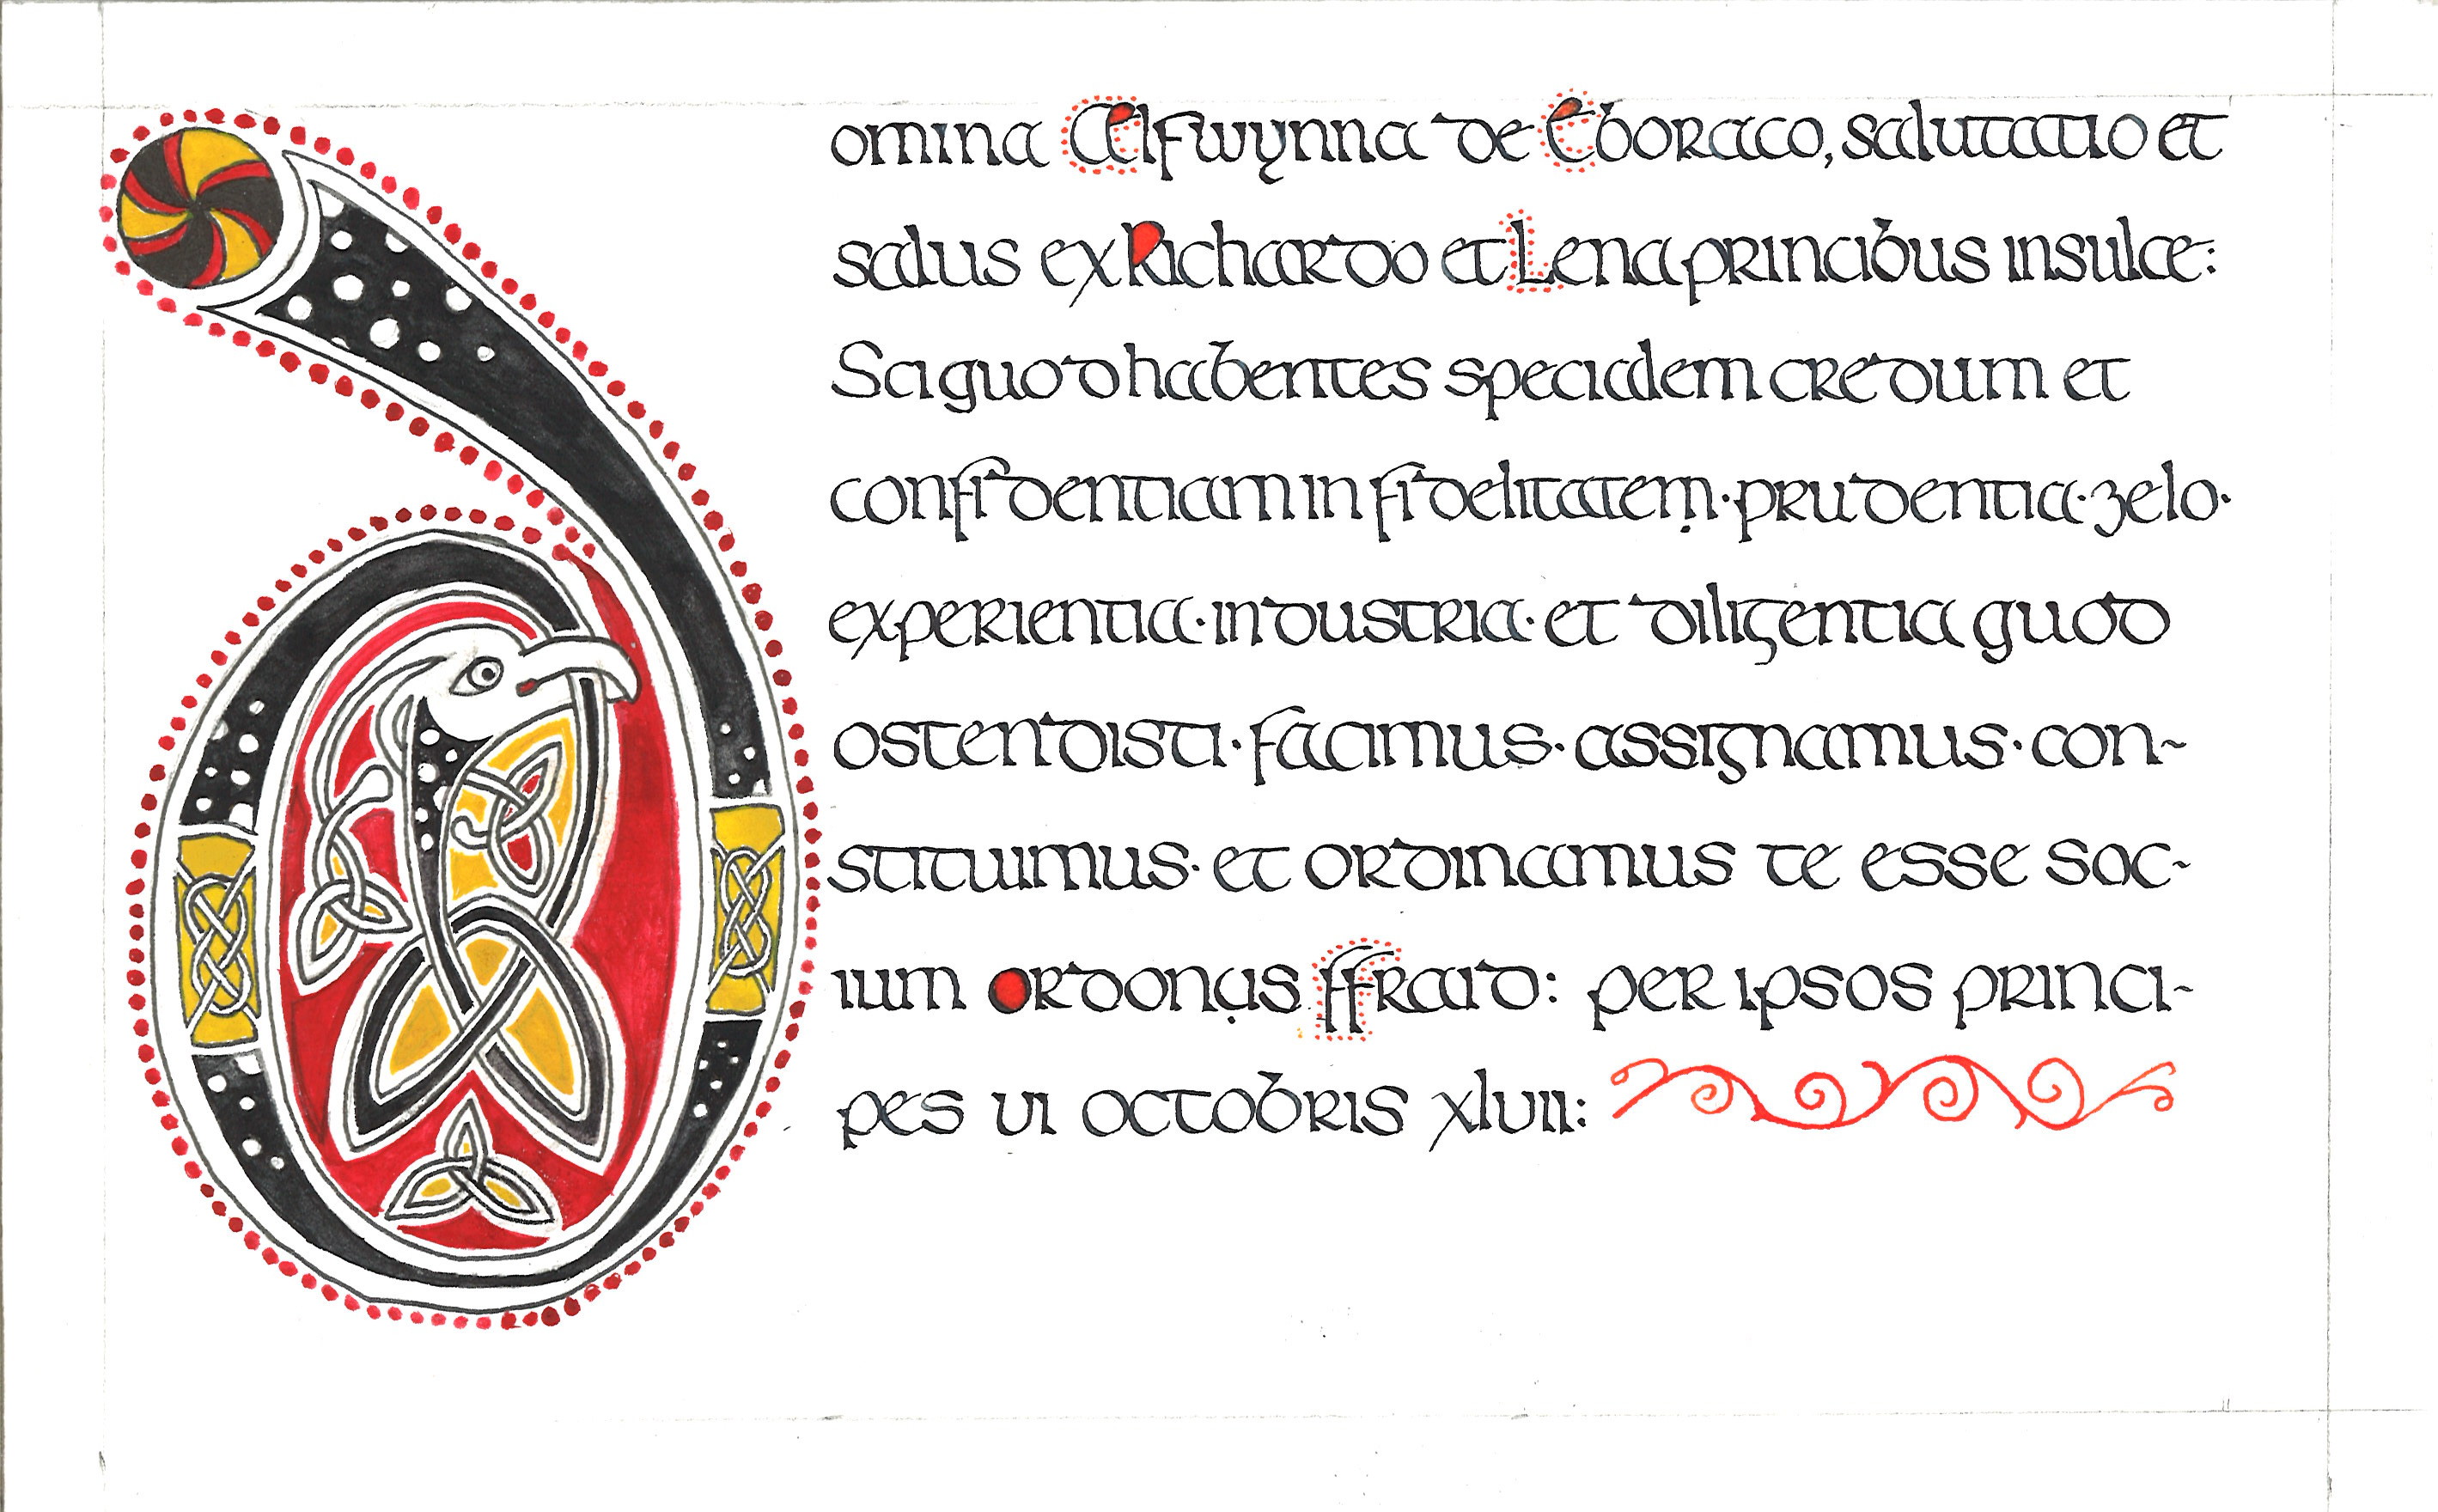 Domina Ælfwynna de Eboraco, salutatio et
salus ex Richardo et Lena principibus insulæ:
Sci quod habentes specialem credum et
confidentiam in fidelitatem · prudentia · zelo ·
experientia · industria · et diligentia quod
ostendisti · facimus · assignamus · con~
stituimus · et ordinamus te esse soc-
ium Ordonus ffraid: per ipsos princi-
pes vi octobris xlvii: